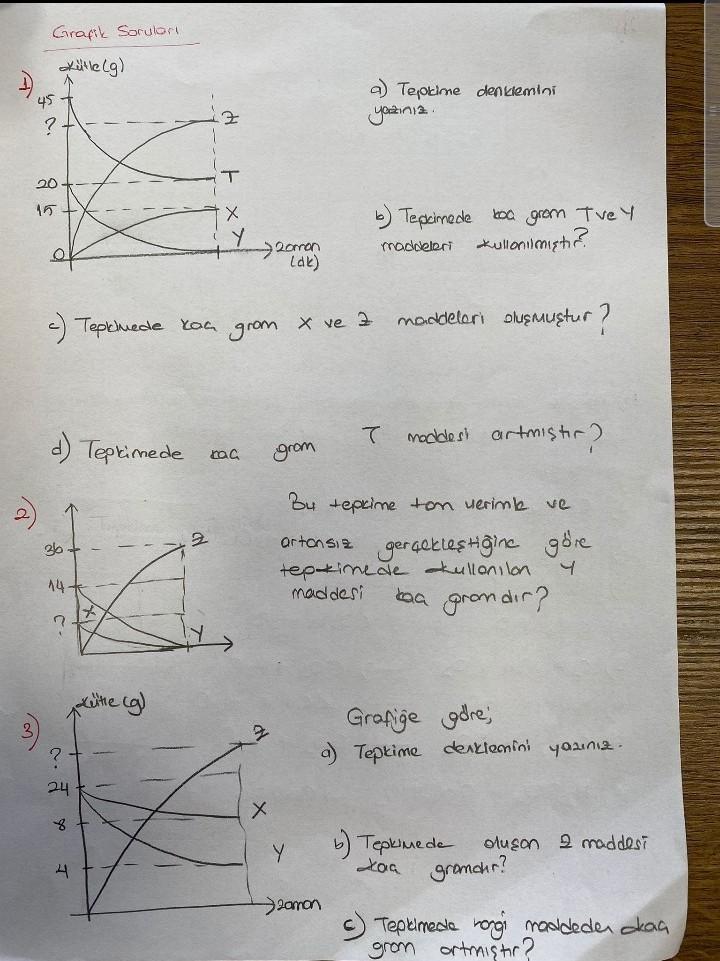 Grafik Soruları
1)
Kütle (g)
45
?
20
15
0
Z
T
X
Y
zaman
(dk)
a) Tepkime denklemini
yazınız.
b) Tepkimede kaç gram T ve Y
maddeleri kullanılmıştır?
c) Tepkimede kaç gram X ve Z maddeleri oluşmuştur?
d) Tepkimede kaç gram T maddesi artmıştır?
2)
36
14
?
X
Z
Y
Bu tepkime tam verimle ve
artansız gerçekleştiğine göre
tepkimede kullanılan Y
maddesi kaç gramdır?
3)
Kütle (g)
?
24
8
4
Z
X
Y
zaman
Grafiğe göre;
a) Tepkime denklemini yazınız.
b) Tepkimede oluşan Z maddesi
kaç gramdır?
c) Tepkimede hangi maddeden kaç
gram artmıştır?